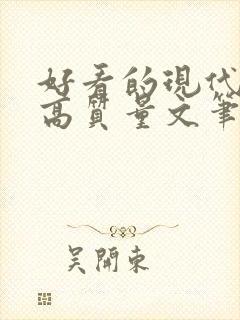 好看的現代
高質量文筆
吴開東